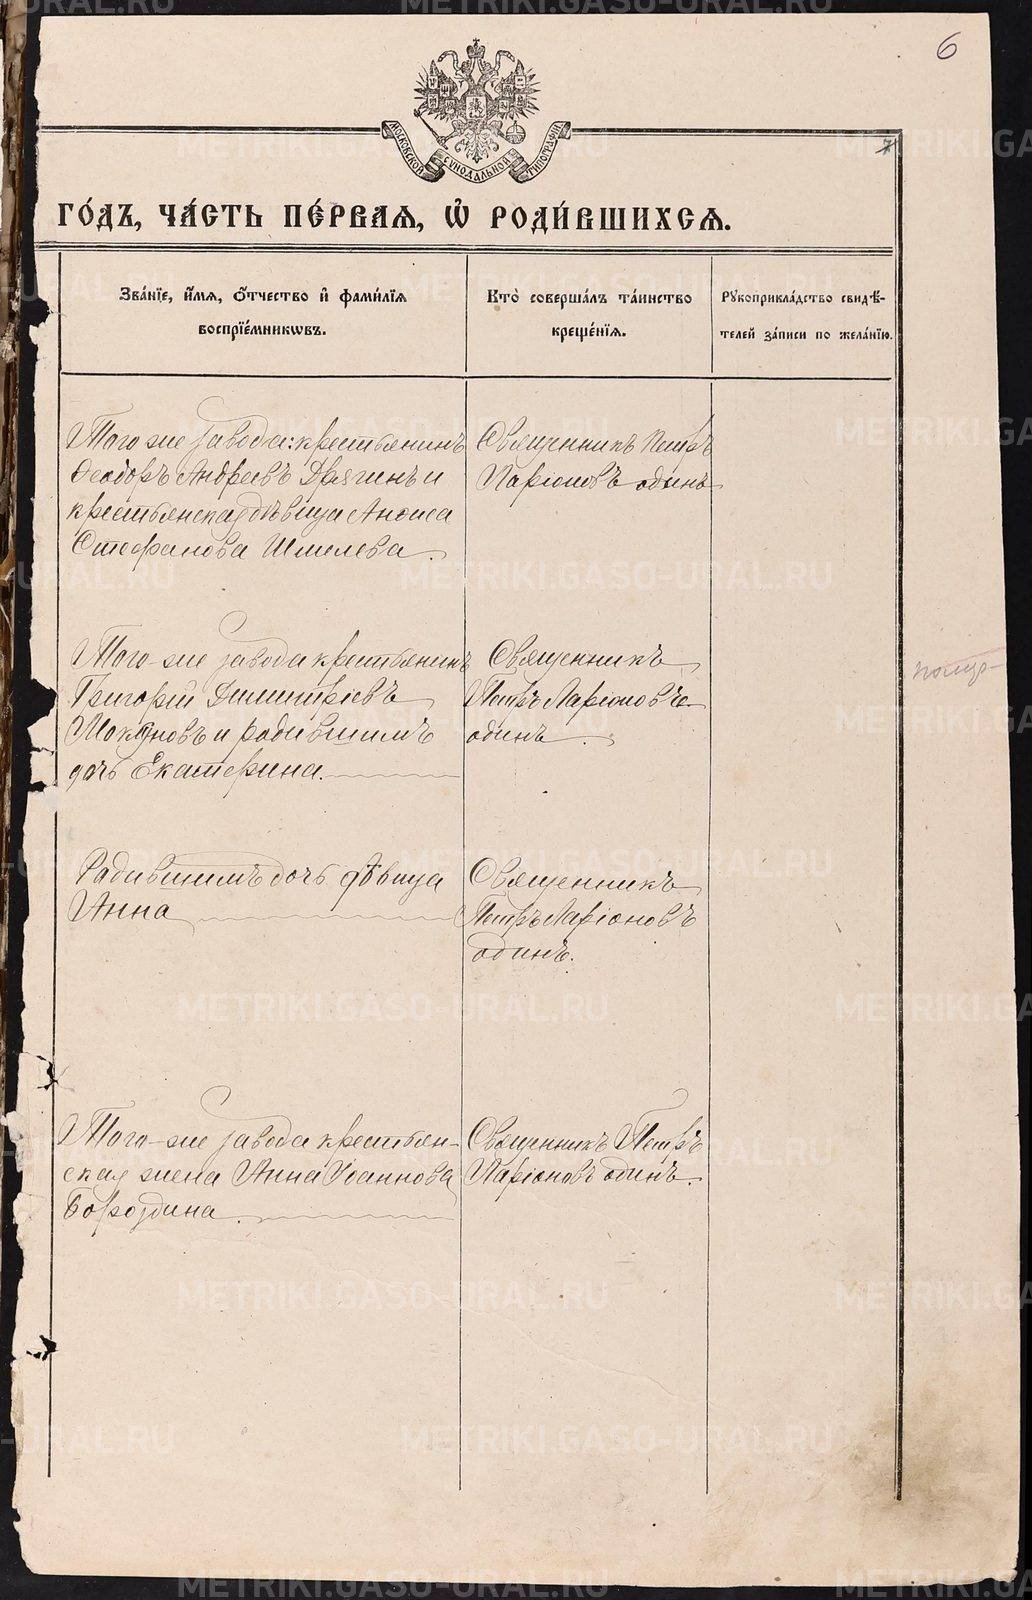 6
7
МОСКОВСКОЙ СѴНОДАЛЬНОЙ ТИПОГРАФІИ
ГО́ДЪ, ЧА́СТЬ ПЕ́РВАѦ, Ѽ РОДИ́ВШИХСѦ.
Зва́нїе, и҆́мѧ, ѻ҆́тчество и҆ фами́лїѧ
воспрїе́мникѡвъ.
Кто̀ соверша́лъ та́инство
креще́нїѧ.
Рꙋкоприкла́дство свидѣ́-
телей за́писи по жела́нїю.
Того же завода: крестьянинъ
Ѳеодоръ Андреевъ Дрягинъ и
крестьянская дѣвица Анѳиса
Стефанова Шмелева.
Священникъ Петръ
Ларіоновъ одинъ
Того-же завода крестьянинъ
Григорій Димитріевъ
и родившимъ
дочь Екатерина.
Священникъ
Петръ Ларіоновъ
одинъ.
Родившимъ дочь дѣвица
Анна
Священникъ
Петръ Ларіоновъ
одинъ.
Того-же завода крестьян-
ская жена Анна Іоаннова
Бороздина.
Священникъ Петръ
Ларіоновъ одинъ.
METRIKI.GASO-URAL.RU